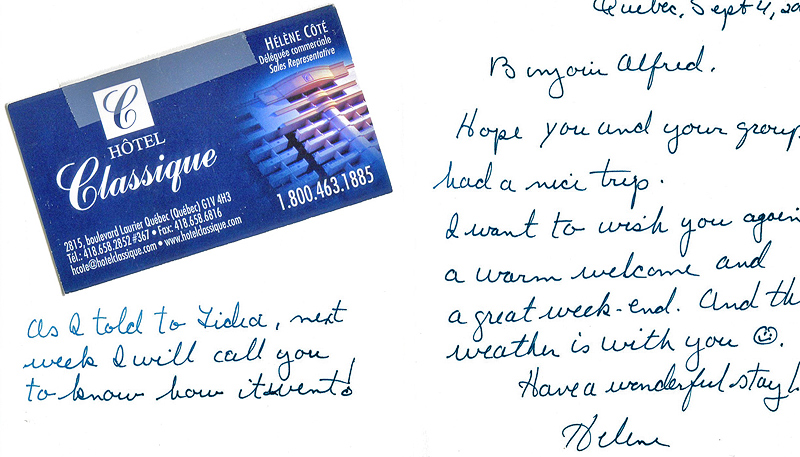 HÉLÈNE CÔTÉ
Déléguée commerciale
Sales Representative
C
HÔTEL
Classique
1.800.463.1885
2815, boulevard Laurier Québec (Québec) G1V 4H3
Tél.: 418.658.2852 #367 • Fax: 418.658.6816
hcote@hotelclassique.com • www.hotelclassique.com
As I told to Lidia, next
week I will call you
to know how it went!
Québec, Sept 4, 20
Bonjour Alfred.
Hope you and your group
had a nice trip.
I want to wish you again
a warm welcome and
a great week-end. And th
weather is with you ☺.
Have a wonderful stay!
Hélène